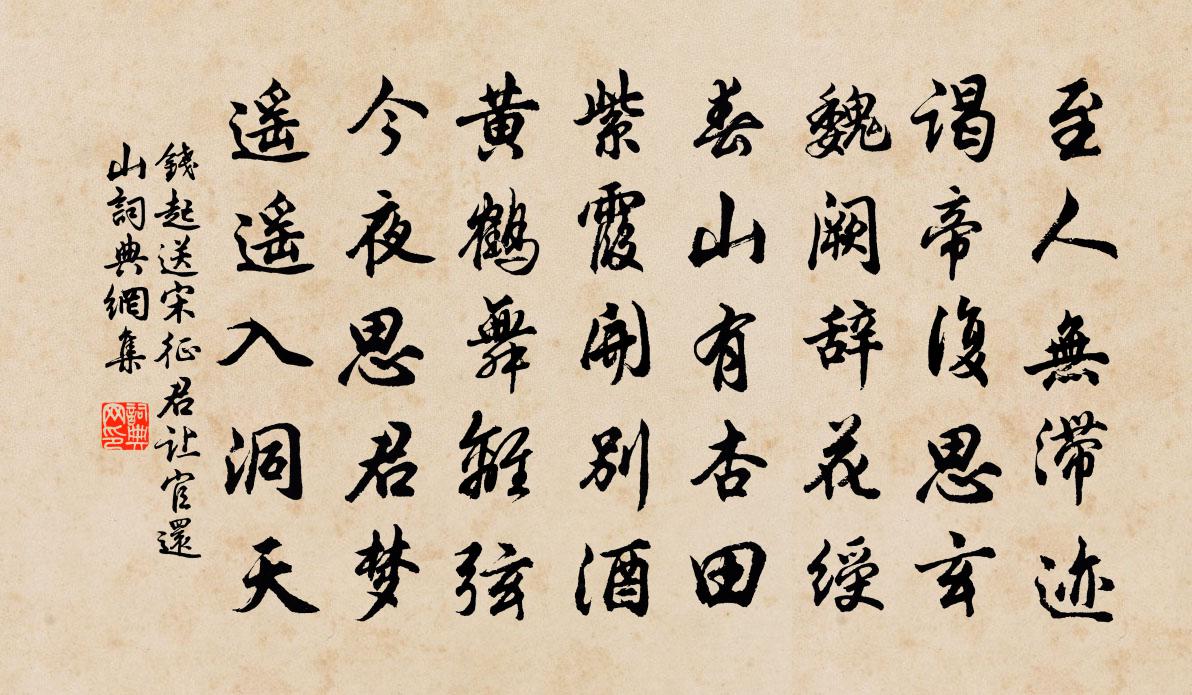 至人無滞迹
谒帝復思玄
魏阙辞花绶
春山有杏田
紫霞開别酒
黄鶴舞離弦
今夜思君梦
遥遥入洞天
錢起送宋征君让官還
山詞典網集
詞典网印